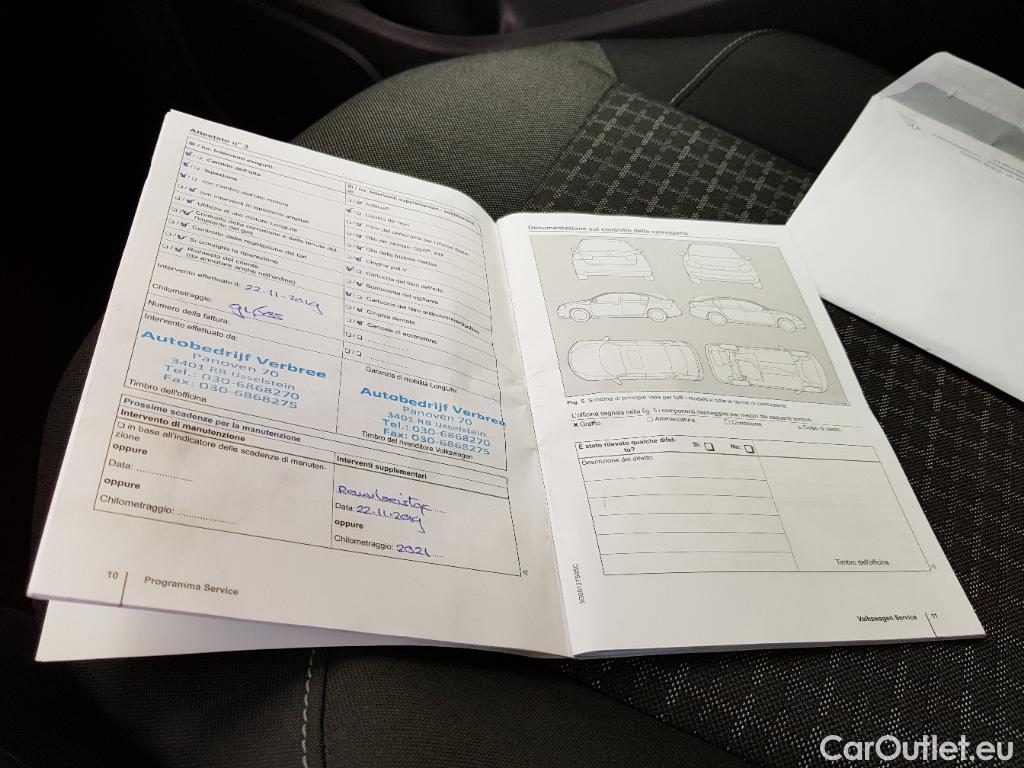 Attestato n° 3
Sì / no. Interventi eseguiti:
Cambio dell'olio
Ispezione
con cambio dell'olio motore
con interventi di ispezione ampliati
Utilizzo di olio motore LongLife
Controllo della corrosione e della tenuta del
Controllo della regolazione dei fari
Si consiglia la riparazione
Richiesta del cliente
(da annotare anche nell'ordine)
Intervento effettuato il: 22-11-2019
Chilometraggio:
Numero della fattura:
Intervento effettuato da:
Autobedrijf Verbree
Panoven 70
3401 RB IJsselstein
Tel.: 030-6868270
Fax: 030-6868275
Timbro dell'officina
Sì / no. Interventi supplementari
AdBlue®
Cinghia poli-V
Cartuccia del filtro dell'olio
Bomboletta del sigillante
Cartuccia del filtro antipolvere/antipolline
Cinghia dentata
Candele di accensione
Garanzia di mobilità LongLife
Autobedrijf Verbree
Panoven 70
3401 RB IJsselstein
Tel.: 030-6868270
Fax: 030-6868275
Timbro del rivenditore Volkswagen
Prossime scadenze per la manutenzione
Intervento di manutenzione
in base all'indicatore delle scadenze di manuten-
zione
oppure
Data: ....................
oppure
Chilometraggio: ....................
Interventi supplementari
Data: 22-11-2019
oppure
Chilometraggio: 2021
10 Programma Service
Documentazione sul controllo della carrozzeria
Fig. 5 Schema di principio: vale per tutti i modelli e tutte le forme di carrozzeria.
L'officina segnala nella fig. 5 i componenti danneggiati per mezzo dei seguenti simboli:
Graffio
Ammaccatura
Corrosione
Colpo di sasso
È stato rilevato qualche difet-
to?
Sì:
No:
Descrizione del difetto:
Timbro dell'officina
Volkswagen Service 11
CarOutlet.eu